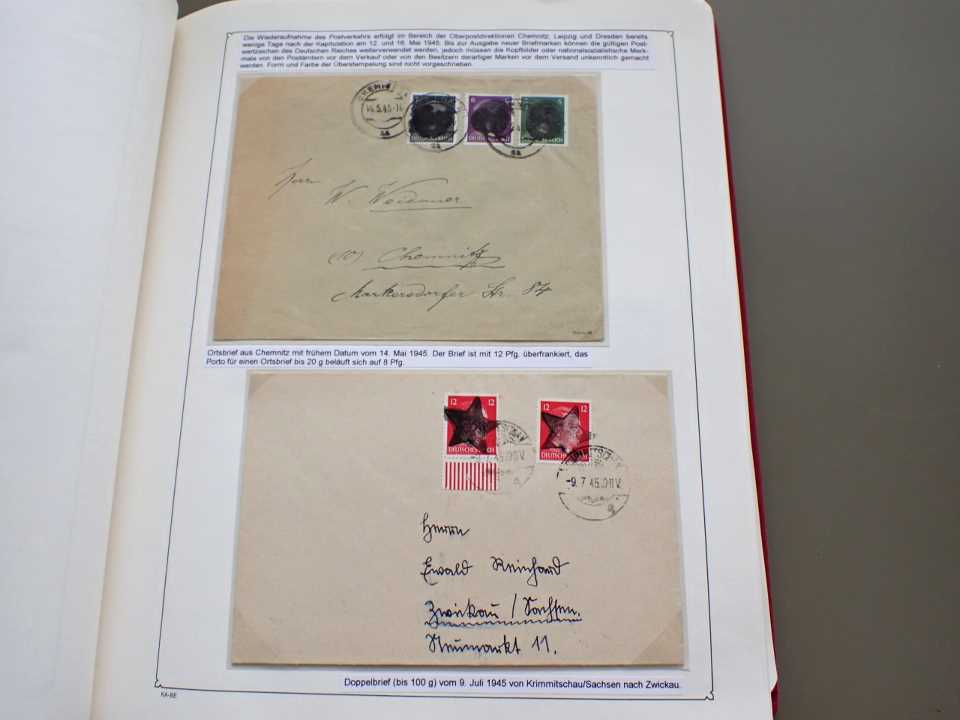 Die Wiederaufnahme des Postverkehrs erfolgt im Bereich der Oberpostdirektionen Chemnitz, Leipzig und Dresden bereits
wenige Tage nach der Kapitulation am 12. und 16. Mai 1945. Bis zur Ausgabe neuer Briefmarken können die gültigen Post-
wertzeichen des Deutschen Reiches weiterverwendet werden, jedoch müssen die Kopfbilder oder nationalsozialistische Merk-
male von den Postämtern vor dem Verkauf oder von den Besitzern derartiger Marken vor dem Versand unkenntlich gemacht
werden. Form und Farbe der Überstempelung sind nicht vorgeschrieben.
14.5.45
Herrn
W.
(10) Chemnitz
Markersdorfer Str. 84
Ortsbrief aus Chemnitz mit frühem Datum vom 14. Mai 1945. Der Brief ist mit 12 Pfg. überfrankiert, das
Porto für einen Ortsbrief bis 20 g beläuft sich auf 8 Pfg.
12 12
12 12
-9.7.45
-9.7.45
Herrn
Ewald Reinhard
Zwickau / Sachsen.
Neumarkt 11.
Doppelbrief (bis 100 g) vom 9. Juli 1945 von Krimmitschau/Sachsen nach Zwickau.
KA-BE